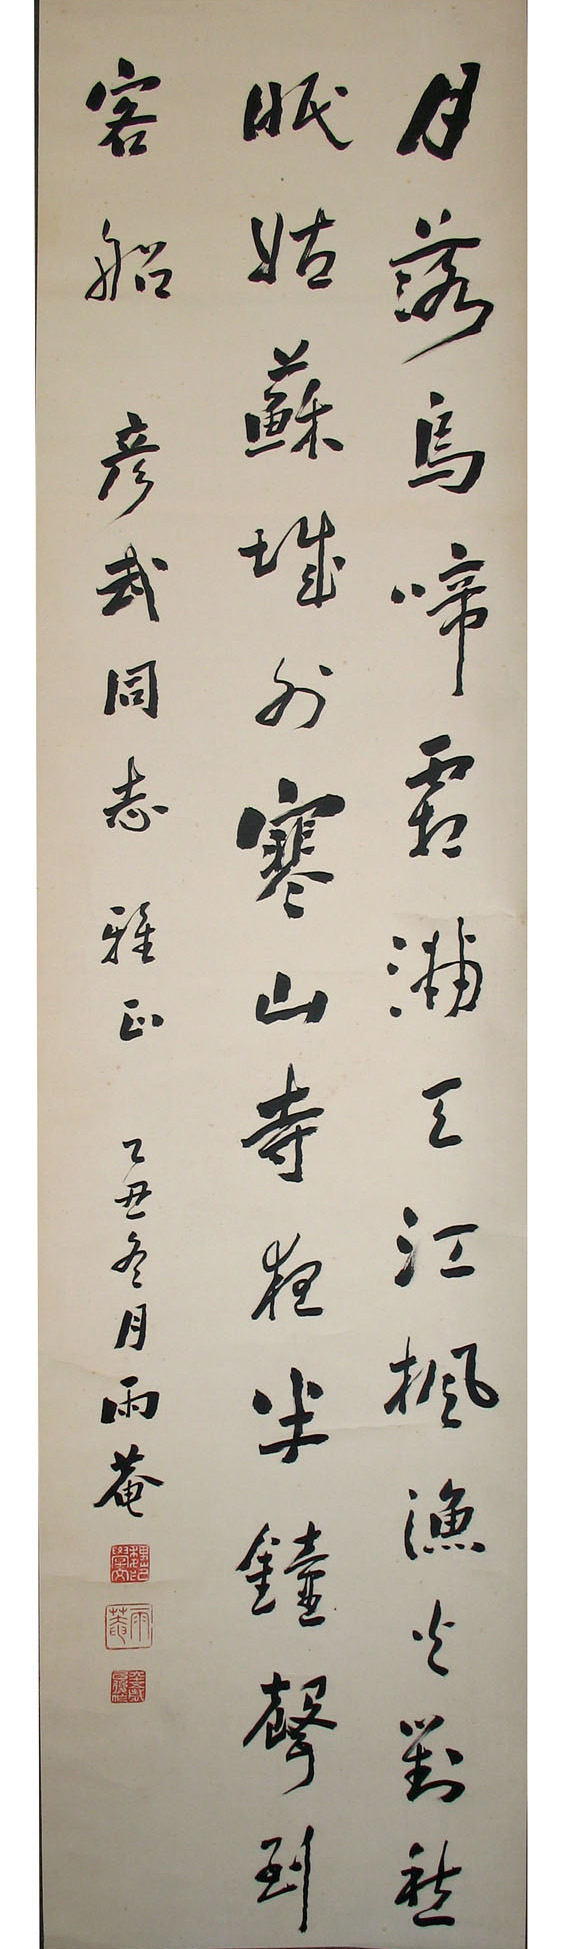 月落烏啼霜滿天江楓漁火對愁
眠姑蘇城外寒山寺夜半鐘聲到
客船 彥武同志 雅正 乙丑冬月雨菴